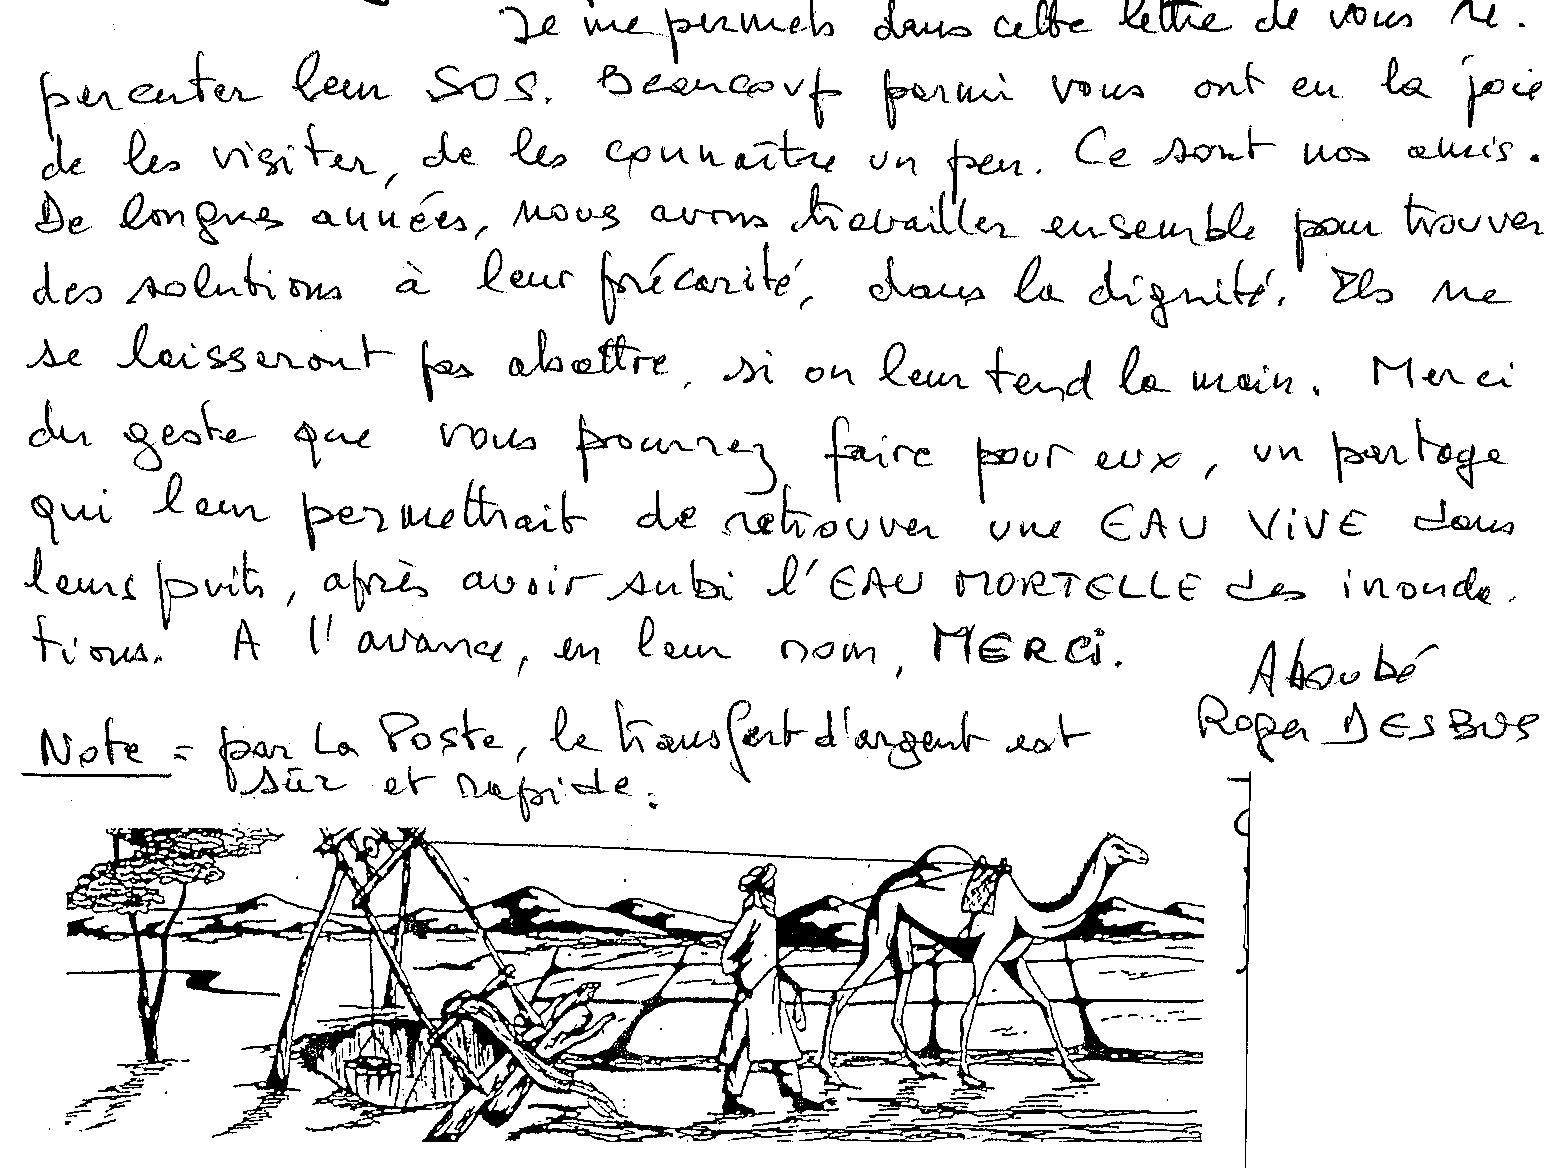 Je me permets dans cette lettre de vous re.
percuter leur SOS. Beaucoup parmi vous ont eu la joie
de les visiter, de les connaître un peu. Ce sont nos amis.
De longues années, nous avons travailler ensemble pour trouver
des solutions à leur précarité, dans la dignité. Ils ne
se laisseront pas abattre, si on leur tend la main. Merci
du geste que vous pourrez faire pour eux, un partage
qui leur permettrait de retrouver une EAU VIVE dans
leurs puits, après avoir subi l'EAU MORTELLE des inonda.
tions. A l'avance, en leur nom, MERCi.
Aboubé
Roger DESBUS
Note = par La Poste, le transfert d'argent est
sûr et rapide.